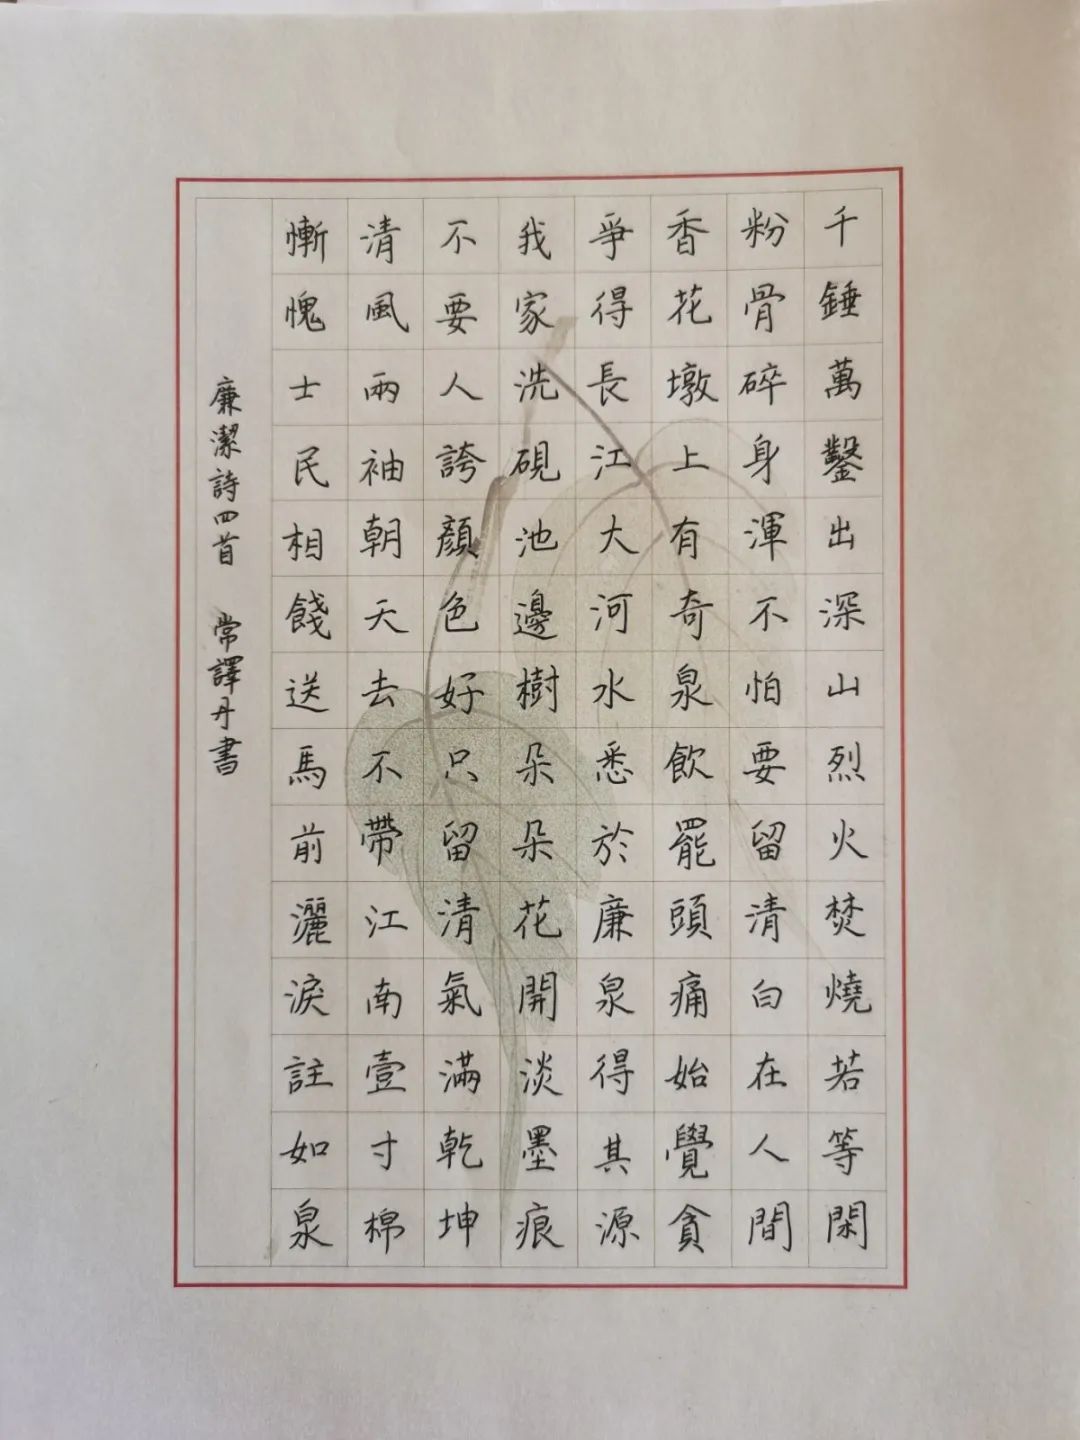 千錘萬鑿出深山烈火焚燒若等閑
粉骨碎身渾不怕要留清白在人間
香花墩上有奇泉飲罷頭痛始覺貪
爭得長江大河水悉於廉泉得其源
我家洗硯池邊樹朵朵花開淡墨痕
不要人誇顏色好只留清氣滿乾坤
清風兩袖朝天去不帶江南壹寸棉
慚愧士民相餞送馬前灑淚註如泉
廉潔詩四首 常譯丹書